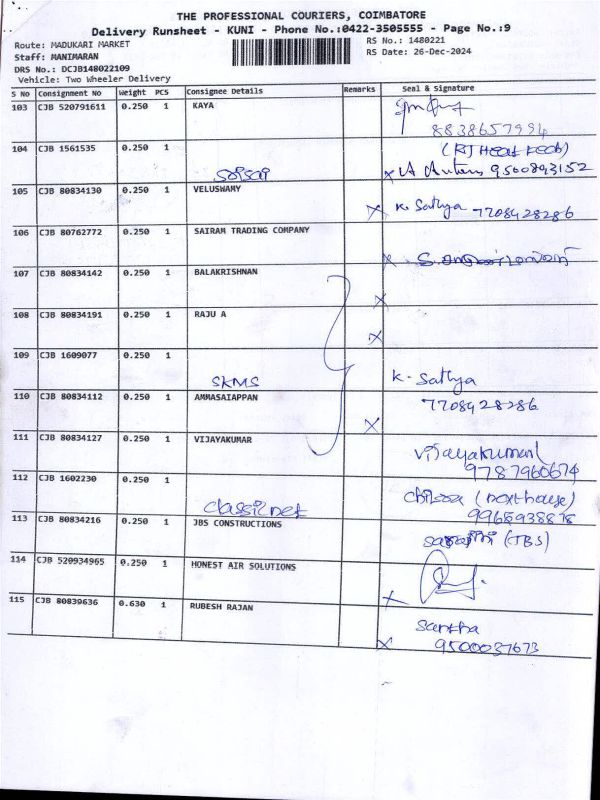 THE PROFESSIONAL COURIERS, COIMBATORE
Delivery Runsheet - KUNI - Phone No.:0422-3505555 - Page No.:9
Route: MADUKARI MARKET
RS No.: 1480221
Staff: MANIMARAN
RS Date: 26-Dec-2024
DRS No.: DCJB148022109
Vehicle: Two Wheeler Delivery
S No Consignment No Weight PCS Consignee Details Remarks Seal & Signature
103 CJB 520791611 0.250 1 KAYA
8838657994
104 CJB 1561535 0.250 1
x 9500893152
105 CJB 80834130 0.250 1 VELUSWAMY
x K. Sathya 7708428286
106 CJB 80762772 0.250 1 SAIRAM TRADING COMPANY
x
107 CJB 80834142 0.250 1 BALAKRISHNAN
x
108 CJB 80834191 0.250 1 RAJU A
x
109 CJB 1609077 0.250 1
SKMS K. Sathya
110 CJB 80834112 0.250 1 AMMASAIAPPAN 7708428286
x
111 CJB 80834127 0.250 1 VIJAYAKUMAR
vijayakumar
9787960674
112 CJB 1602230 0.250 1
classicnet (next house)
113 CJB 80834216 0.250 1 JBS CONSTRUCTIONS
(JBS)
114 CJB 520934965 0.250 1 HONEST AIR SOLUTIONS
x
115 CJB 80839636 0.630 1 RUBESH RAJAN
Santha
x 9500037673